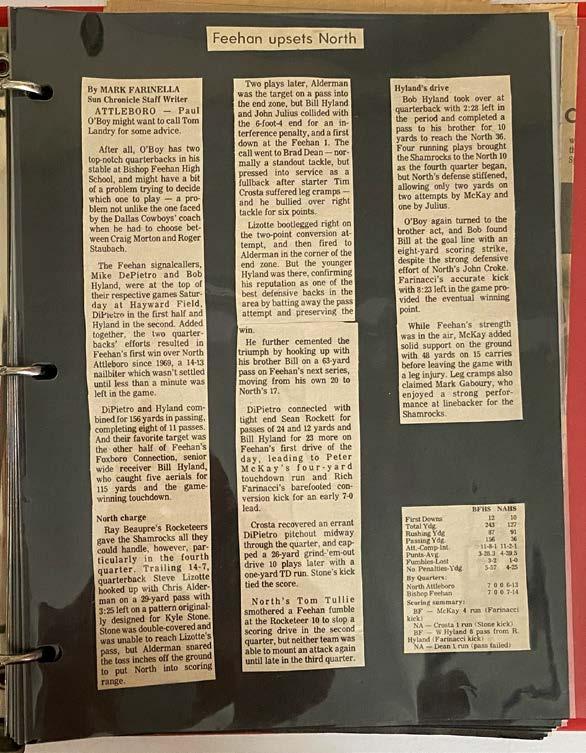 Feehan upsets North
By MARK FARINELLA
Sun Chronicle Staff Writer
ATTLEBORO — Paul
O'Boy might want to call Tom
Landry for some advice.
After all, O'Boy has two
top-notch quarterbacks in his
stable at Bishop Feehan High
School, and might have a bit
of a problem trying to decide
which one to play — a prob-
lem not unlike the one faced
by the Dallas Cowboys' coach
when he had to choose bet-
ween Craig Morton and Roger
Staubach.
The Feehan signalcallers,
Mike DePietro and Bob
Hyland, were at the top of
their respective games Satur-
day at Hayward Field,
DiPietro in the first half and
Hyland in the second. Added
together, the two quarter-
backs' efforts resulted in
Feehan's first win over North
Attleboro since 1969, a 14-13
nailbiter which wasn't settled
until less than a minute was
left in the game.
DiPietro and Hyland com-
bined for 156 yards in passing,
completing eight of 11 passes.
And their favorite target was
the other half of Feehan's
Foxboro Connection, senior
wide receiver Bill Hyland,
who caught five aerials for
115 yards and the game-
winning touchdown.
North charge
Ray Beaupre's Rocketeers
gave the Shamrocks all they
could handle, however, par-
ticularly in the fourth
quarter. Trailing 14-7,
quarterback Steve Lizotte
hooked up with Chris Alder-
man on a 29-yard pass with
3:25 left on a pattern original-
ly designed for Kyle Stone.
Stone was double-covered and
was unable to reach Lizotte's
pass, but Alderman snared
the toss inches off the ground
to put North into scoring
range.
Two plays later, Alderman
was the target on a pass into
the end zone, but Bill Hyland
and John Julius collided with
the 6-foot-4 end for an in-
terference penalty, and a first
down at the Feehan 1. The
call went to Brad Dean — nor-
mally a standout tackle, but
pressed into service as a
fullback after starter Tim
Crosta suffered leg cramps —
and he bullied over right
tackle for six points.
Lizotte bootlegged right on
the two-point conversion at-
tempt, and then fired to
Alderman in the corner of the
end zone. But the younger
Hyland was there, confirming
his reputation as one of the
best defensive backs in the
area by batting away the pass
attempt and preserving the
win.
He further cemented the
triumph by hooking up with
his brother Bill on a 63-yard
pass on Feehan's next series,
moving from his own 20 to
North's 17.
DiPietro connected with
tight end Sean Rockett for
passes of 24 and 12 yards and
Bill Hyland for 23 more on
Feehan's first drive of the
day, leading to Peter
McKay's four-yard
touchdown run and Rich
Farinacci's barefooted con-
version kick for an early 7-0
lead.
Crosta recovered an errant
DiPietro pitchout midway
through the quarter, and cap-
ped a 26-yard grind-'em-out
drive 10 plays later with a
one-yard TD run. Stone's kick
tied the score.
North's Tom Tullie
smothered a Feehan fumble
at the Rocketeer 10 to stop a
scoring drive in the second
quarter, but neither team was
able to mount an attack again
until late in the third quarter.
Hyland's drive
Bob Hyland took over at
quarterback with 2:28 left in
the period and completed a
pass to his brother for 10
yards to reach the North 36.
Four running plays brought
the Shamrocks to the North 10
as the fourth quarter began,
but North's defense stiffened,
allowing only two yards on
two attempts by McKay and
one by Julius.
O'Boy again turned to the
brother act, and Bob found
Bill at the goal line with an
eight-yard scoring strike,
despite the strong defensive
effort of North's John Croke.
Farinacci's accurate kick
with 8:23 left in the game pro-
vided the eventual winning
point.
While Feehan's strength
was in the air, McKay added
solid support on the ground
with 48 yards on 15 carries
before leaving the game with
a leg injury. Leg cramps also
claimed Mark Gaboury, who
enjoyed a strong perfor-
mance at linebacker for the
Shamrocks.
BFHS NAHS
First Downs 12 10
Total Ydg. 243 127
Rushing Ydg 87 91
Passing Ydg. 156 36
Att.-Comp-Int. 11-8-1 11-3-1
Punts-Avg. 3-28.3 4-39.5
Fumbles-Lost 3-2 1-0
No. Penalties-Ydg 5-57 4-25
By Quarters:
North Attleboro 7 0 0 6-13
Bishop Feehan 7 0 0 7-14
Scoring summary:
BF — McKay 4 run (Farinacci
kick)
NA — Crosta 1 run (Stone kick)
BF — W Hyland 8 pass from R.
Hyland (Farinacci kick)
NA — Dean 1 run (pass failed)